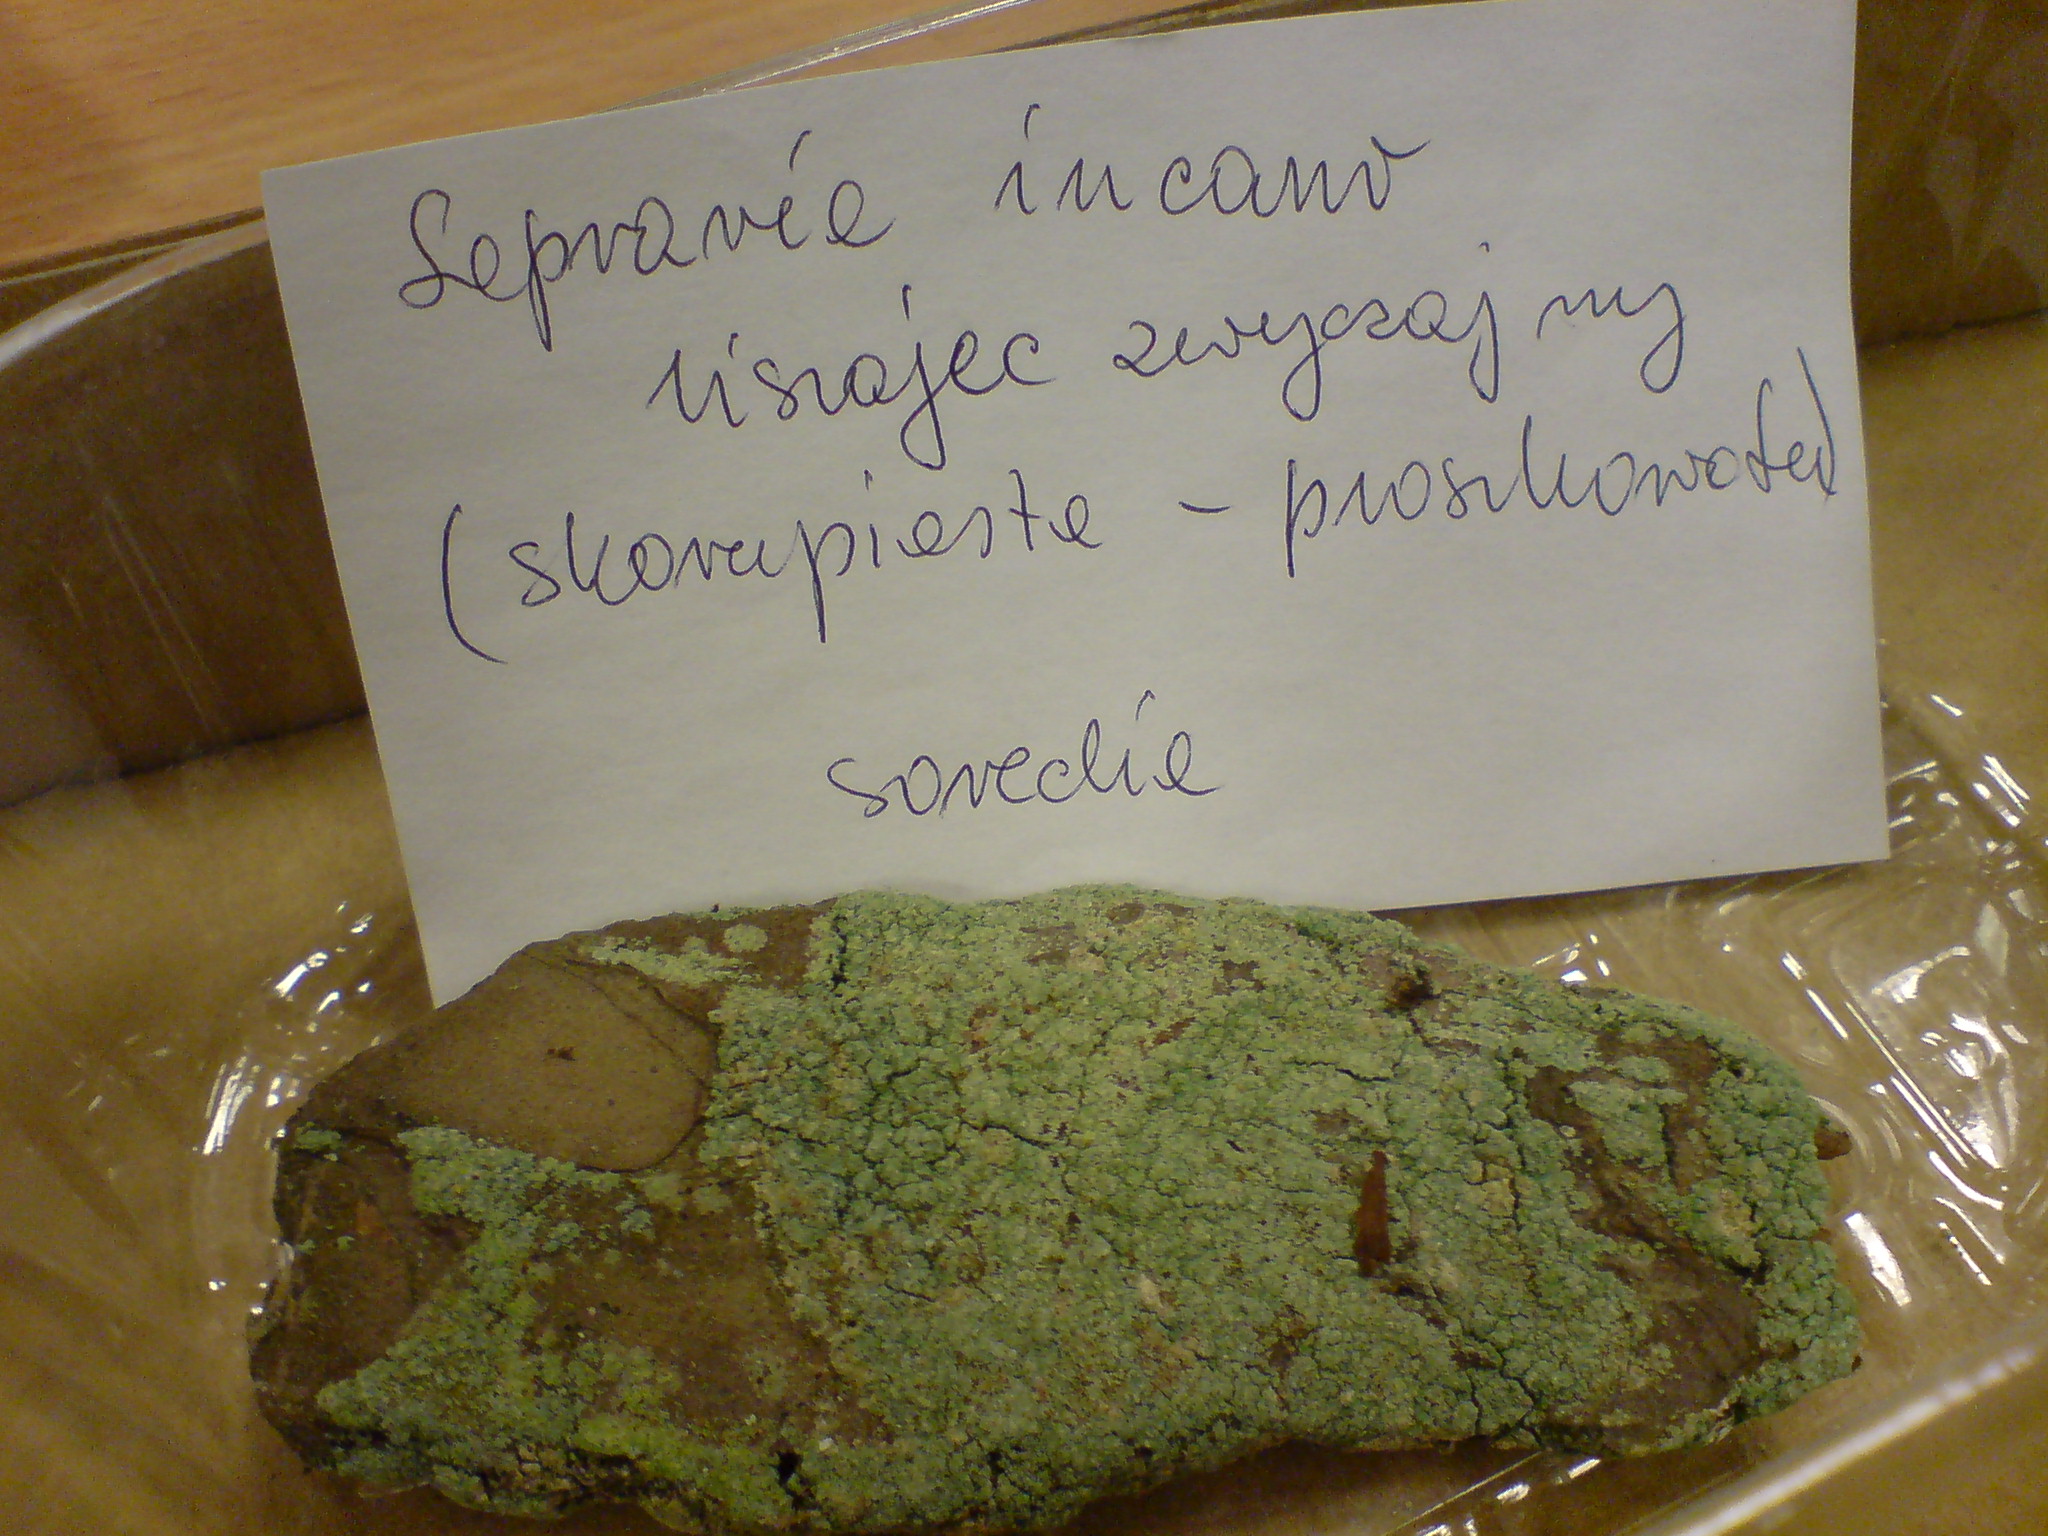 Lepraria incana
liszajec zwyczajny
(skorupiasta - proszkowata)
soredia